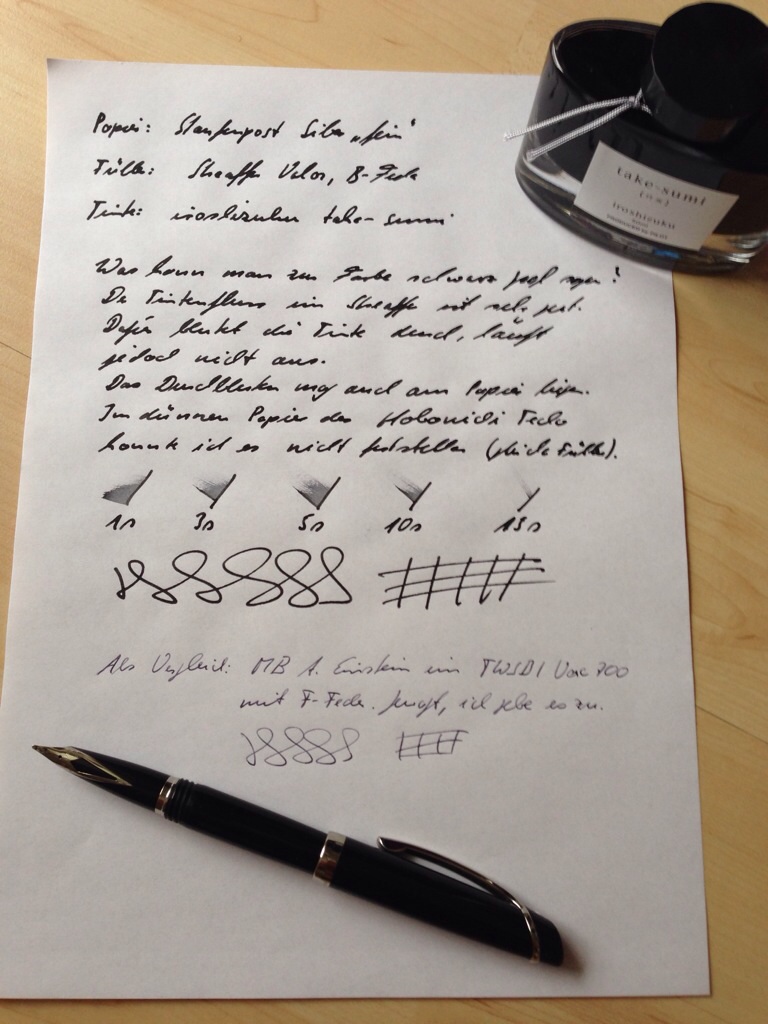 Papier: "fein"
Füller: Sheaffer Valor, B-Feder
Tinte: iroshizuku take-sumi
take-sumi
iroshizuku
Was kann man zur Farbe schwarz sagen?
Der Tintenfluss im Sheaffer ist sehr gut.
Dafür blutet die Tinte durch, läuft
jedoch nicht aus.
Das Durchbluten mag auch am Papier liegen.
Im dünnen Papier des Hobonichi Techo
konnte ich es nicht feststellen (gleicher Füller).
1s 3s 5s 10s 15s
Als Vergleich: MB A. Einstein im TWSBI Vac 700
mit F-Feder. , ich gebe es zu.